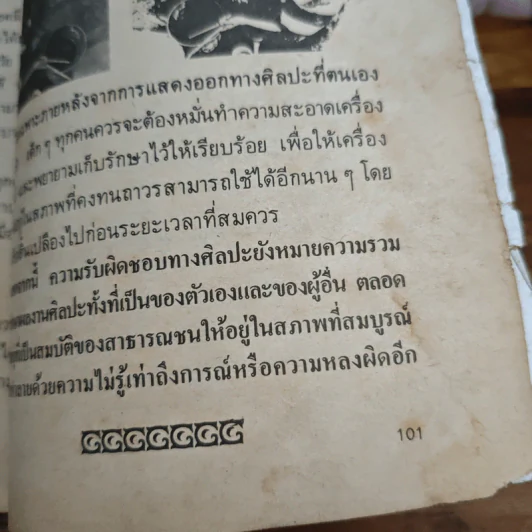 ภายหลังจากการแสดงออกทางศิลปะที่ตนเอง
เด็ก ๆ ทุกคนควรจะต้องหมั่นทำความสะอาดเครื่อง
และพยายามเก็บรักษาไว้ให้เรียบร้อย เพื่อให้เครื่อง
ในสภาพที่คงทนถาวรสามารถใช้ได้อีกนาน ๆ โดย
เปลืองไปก่อนระยะเวลาที่สมควร
ความรับผิดชอบทางศิลปะยังหมายความรวม
ผลงานศิลปะทั้งที่เป็นของตัวเองและของผู้อื่น ตลอด
ที่เป็นสมบัติของสาธารณชนให้อยู่ในสภาพที่สมบูรณ์
ด้วยความไม่รู้เท่าถึงการณ์หรือความหลงผิดอีก
101